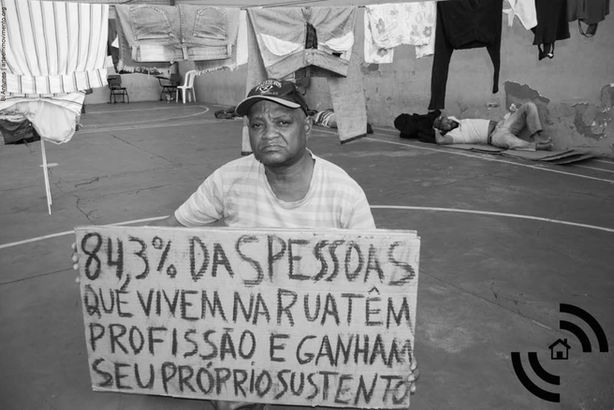 84,3% DAS PESSOAS
QUE VIVEM NA RUA TÊM
PROFISSÃO E GANHAM
SEU PRÓPRIO SUSTENTO